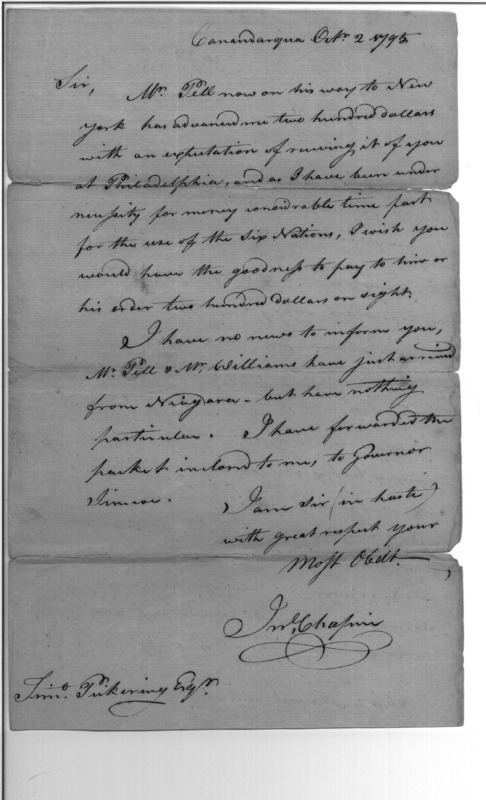 Canandarqua Octr. 2 1795.
Sir,
Mr. Pell now on his way to New
york has advanced me two hundred dollars
with an expectation of receiving it of you
at Philadelphia, and as I have been under
necessity for money considrable time past
for the use of the Six Nations, I wish you
would have the goodness to pay to him or
his order two hundred dollars on sight.
I have no news to inform you,
Mr. Pell & Mr. Williams have just arrived
from Niagara - but have nothing
particular. I have forwarded the
packet inclosed to me, to Governor
Simcoe.
I am Sir (in haste)
with great respect your
Most Obdt.
Chapin
Timo. Pickering Esqr.